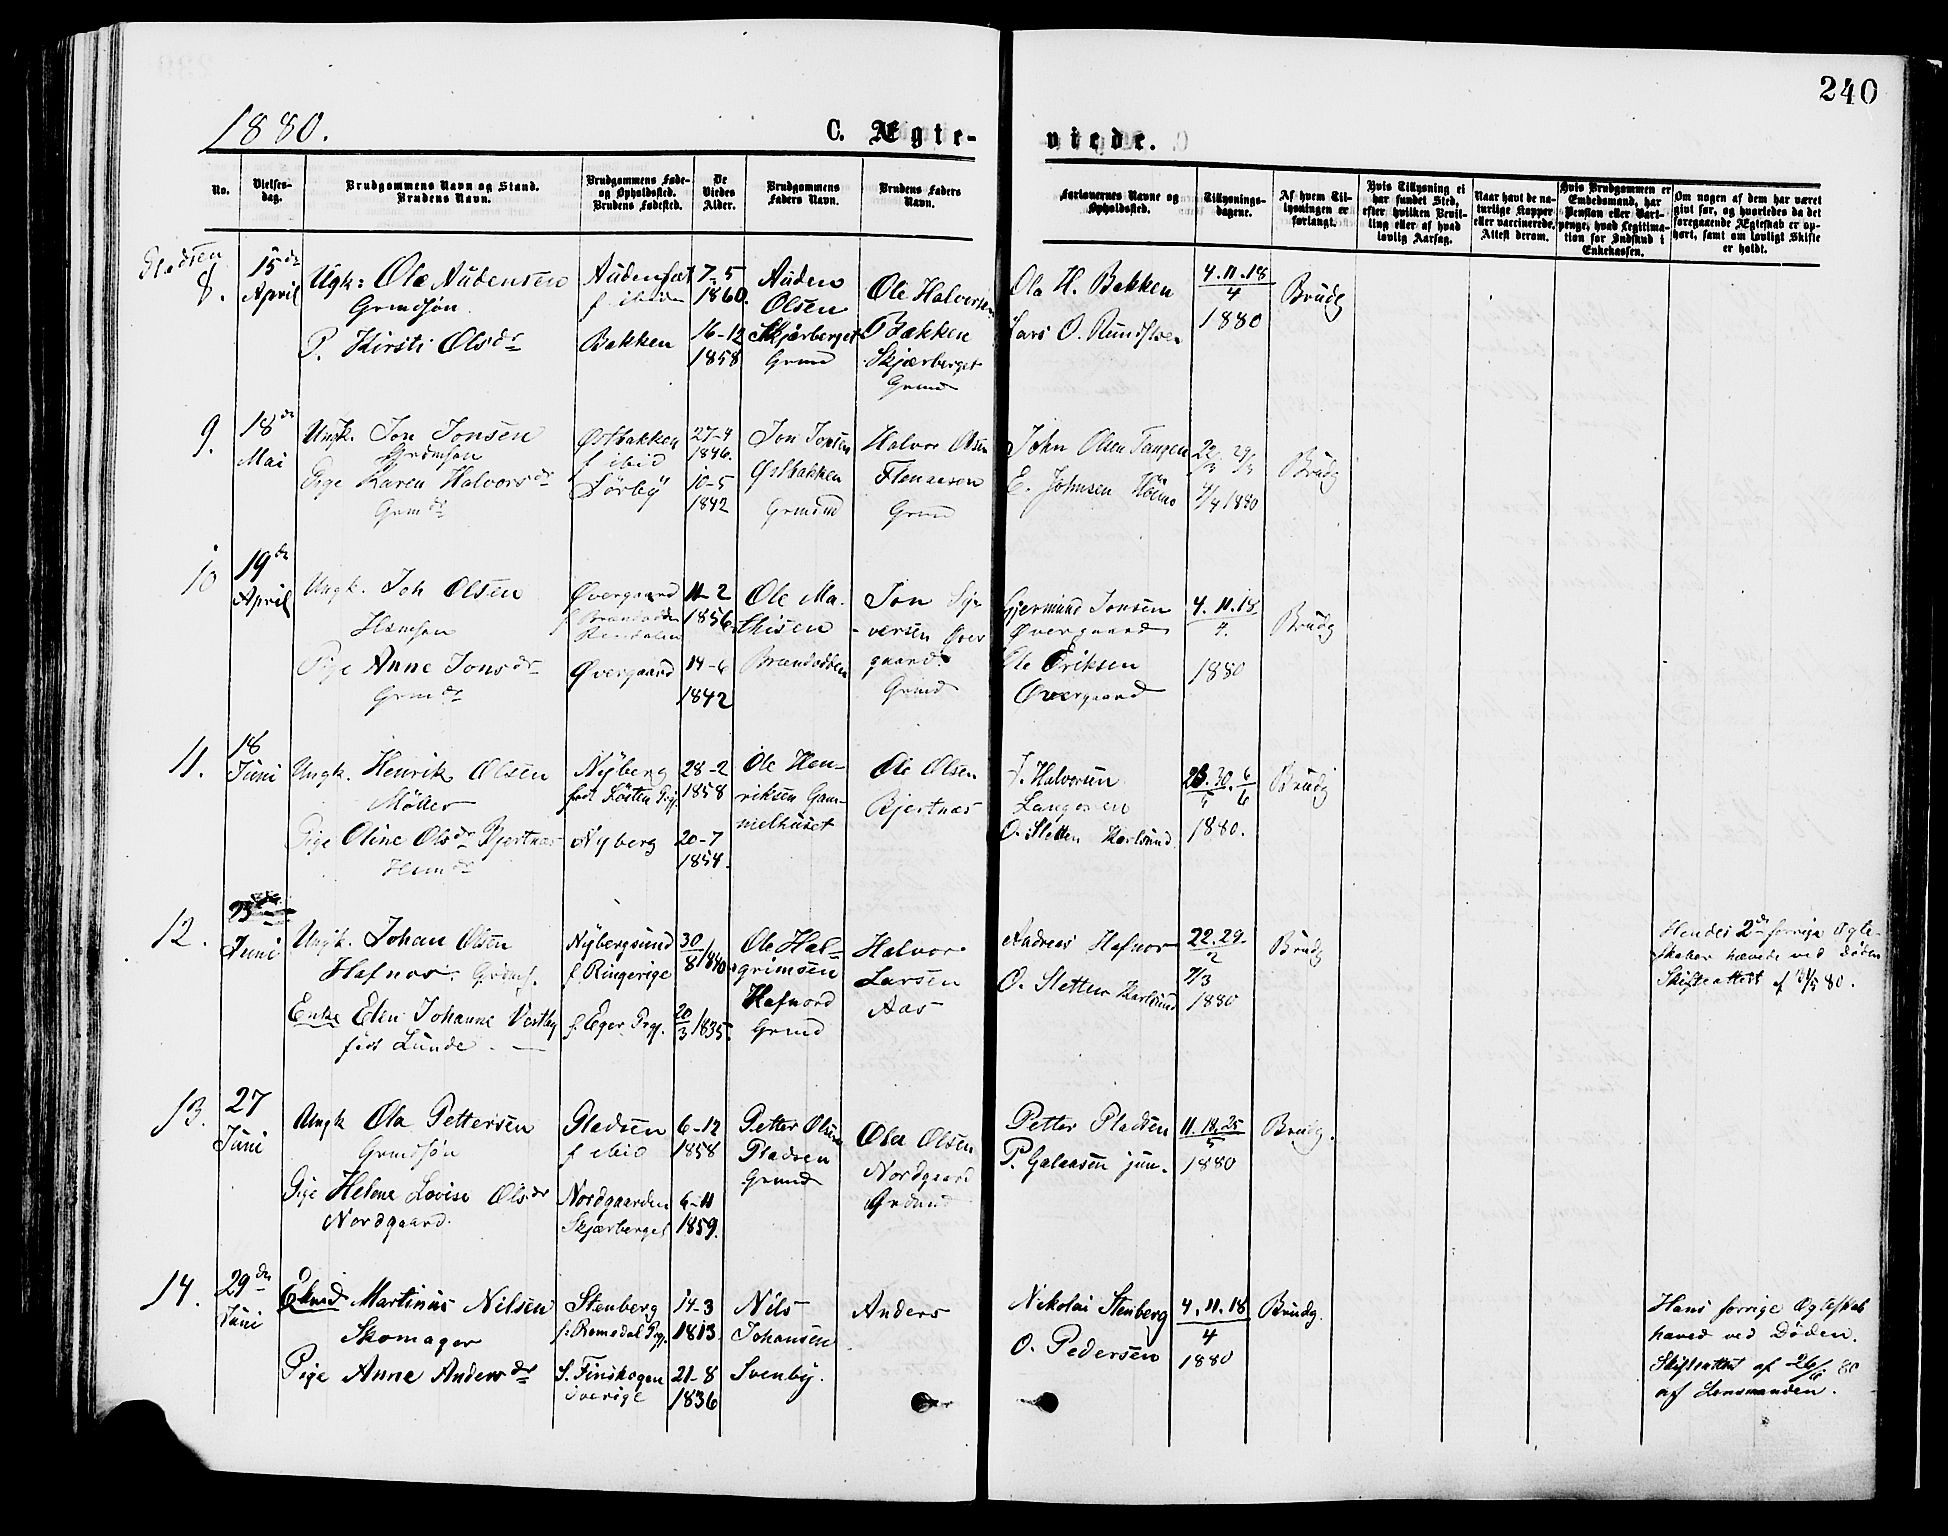 240
1880.
C. Ægte-
viede.
No.
Vielses-
dag.
Brudgommens Navn og Stand.
Brudens Navn.
Brudgommens Føde-
og Opholdssted.
Brudens Fødested.
De
Viedes
Alder.
Brudgommens
Faders Navn.
Brudens Faders
Navn.
Forlovernes Navne og
Opholdssted.
Tillysnings-
dagene.
Af hvem Til-
lysningen er
forlangt.
Hvis Tillysning ei
har fundet Sted,
efter hvilken Bevil-
ling eller af hvad
lovlig Aarsag.
Naar havt de na-
turlige Kopper
eller vaccinerede.
Attest derom.
Hvis Brudgommen er
Embedsmand, har
Pension eller Vart-
penge, hvad Legitima-
tion for Indskud i
Enkekassen.
Om nogen af dem har været
givt før, og hvorledes da det
foregaaende Ægteskab er op-
hørt, samt om lovligt Skifte
er holdt.
8.
15de
April
Ungk: Ole Audensen
Grundsøn
P. Kirsti Olsdr
f. ibidm
Bakken
7-5
1860.
16-12
1858
Auden
Olsen
Skjærberget
Grund
Ole Halvorsen
Bakken
Skjærberget
Grund
Ola H. Bakken
Lars O.
4.11.18
4
1880
Brudg
9.
18de
Mai
Ungk. Jon Jonsen
Pige Karen Halvorsdr
Østbakken
f ibid
Sørby
27-4
1846.
10-5
1842
Jon Jonsen
Østbakken
Halvor Olsen
Grund
John Olsen Tangen
E. Johnsen
4/4 1880
Brudg
10
19de
April
Ungk. Joh Olsen
Pige Anne Jonsdr
Øvergaard
Rendalen
Øvergaard
11-2
1856
14-6
1842
Ole Ma-
thisen
Brandodden
Jon Sy-
versen Øver
gaard.
Grund
Gjermund Jonsen
Øvergaard
Ole Eriksen
Øvergaard
4.11.18.
4.
1880
Brudg
11.
18
Juni
Ungk. Henrik Olsen
Möller
Pige Oline Olsdr Bjertnæs
Nyberg
født Løsten Pgj.
Nyberg
28-2
1858
20-7
1854.
Ole Hen-
riksen Gam-
melhuset
Ole Olsen
Bjertnæs
J. Halvorsen
O. Sletten Karlsund
23.30. 6
5 6
1880.
Brudg
12.
Juni
Ungk. Johan Olsen
Hafnor.
Enke Elen Johanne Vestby
født Lunde
Nybergsund
f. Ringerige
f. Eger Pgj.
30
8/1840
20
3/1835.
Ole Hal-
grimsen
Hafnord
Grund
Halvor
Larsen
Aas
Andreas Hafnor
O. Sletten Karlsund
22.29.
2
7/3
1880
Brudg
Hendes 2de forrige Ægte-
skaber hævede ved Døden
Skifteattest af
80.
13.
27
Juni
Ungk Ola Pettersen
Grundsøn
Pige Helene Lovise Olsdr
Nordgaard.
f ibid
Nordgaarden
Skjærberget
6-12
1858
6-11
1859.
Petter Olsen
Pladsen
Grund
Ola Olsen
Nordgaard
Petter Pladsen
P. Galaasen jun.
11.18.25
5
1880
Brudg.
14.
29de
Juni
Ekmd Martinus Nilsen
Skomager
Pige Anne Andersdr
Stenberg
f. Romedal Pgj.
S. Finskogen
Sverige
14-3
1813.
21-8
1836
Nils
Johansen
Svenby.
Anders
Nikolai Stenberg
O. Pedersen
4.11.18
4
1880
Brudg.
Hans forrige Ægteskab
hæved ved Døden.
Skifteattest af 26/6 80
af Lensmanden.